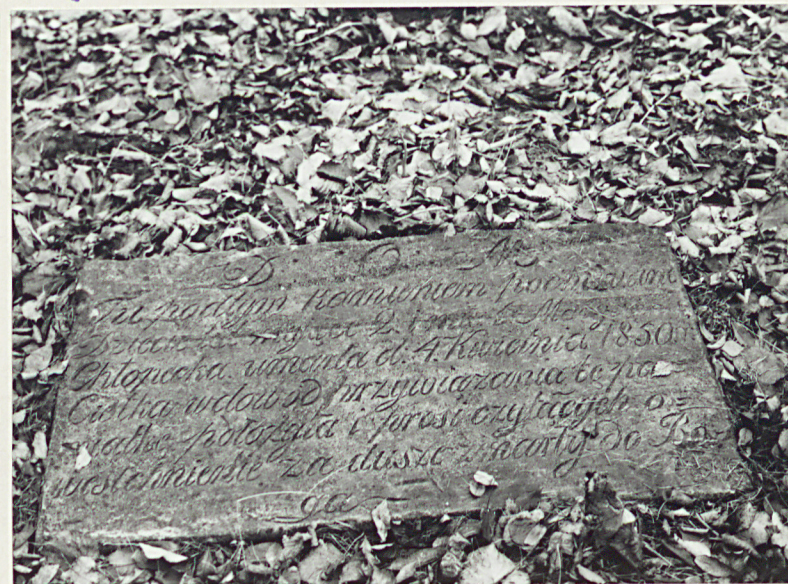 D. O. M.
Tu pod tym kamieniem pochowana
Chłopecka umarła d. 4. Kwietnia 1850.
Ciotka w dowód przywiązania tę pa=
miątkę położyła i prosi czytaiących o
westchnienie za duszę zmarły do Bo=
ga